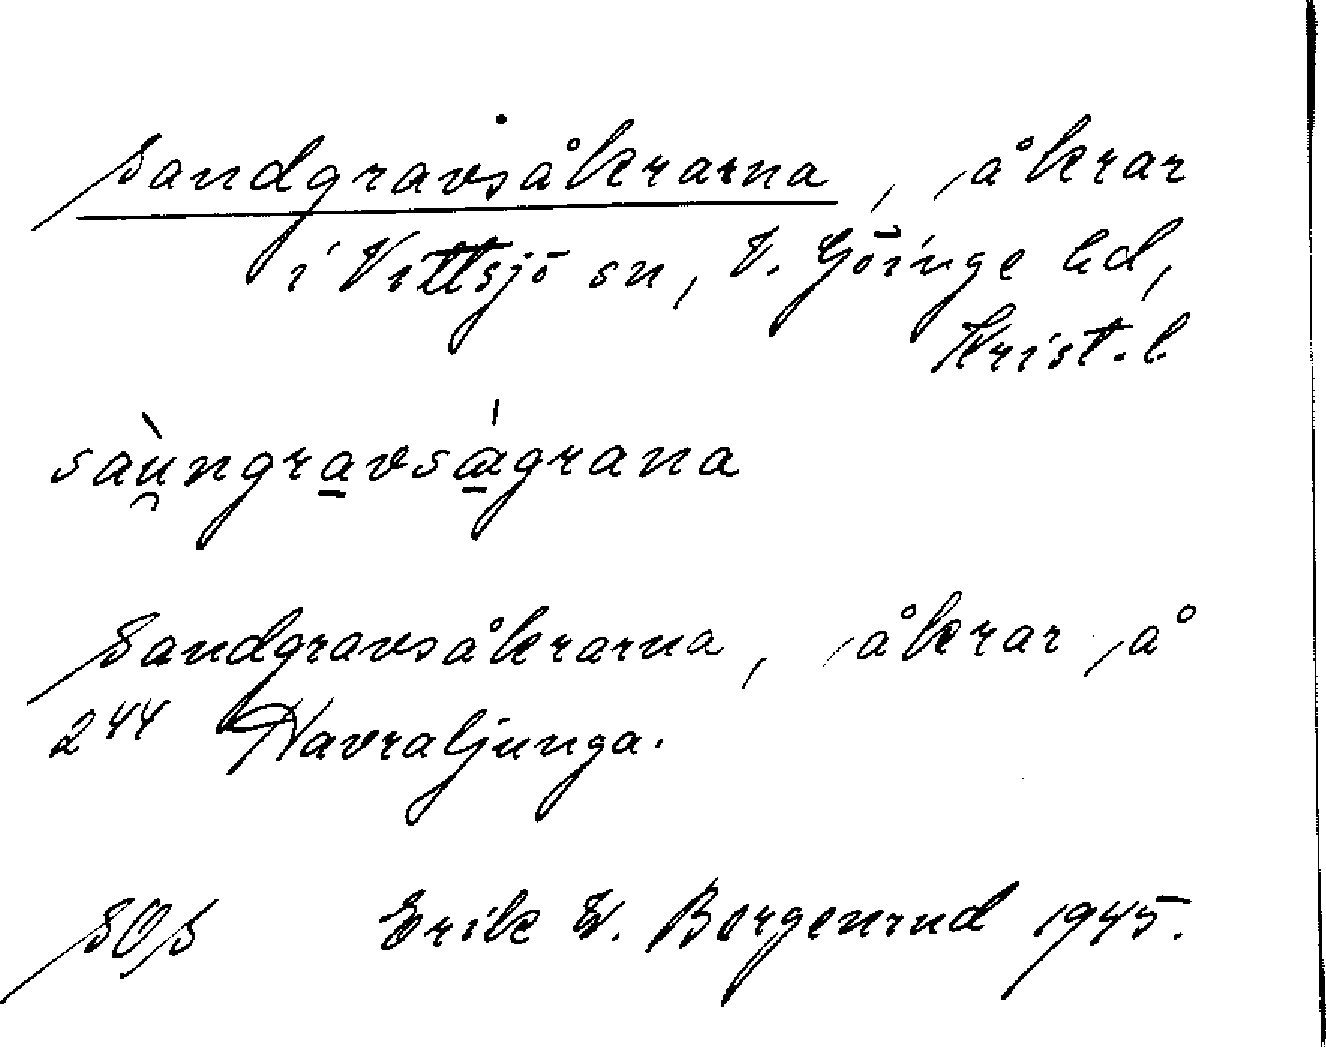 Sandgravsåkrarna, åkrar
i Vittsjö sn, V. Göinge hd,
Krist.l.
sau̯ngra̱vså̱grana
Sandgravsåkrarna, åkrar å
2⁴⁴ Havraljunga.
SOS Erik W. Borgenrud 1945.